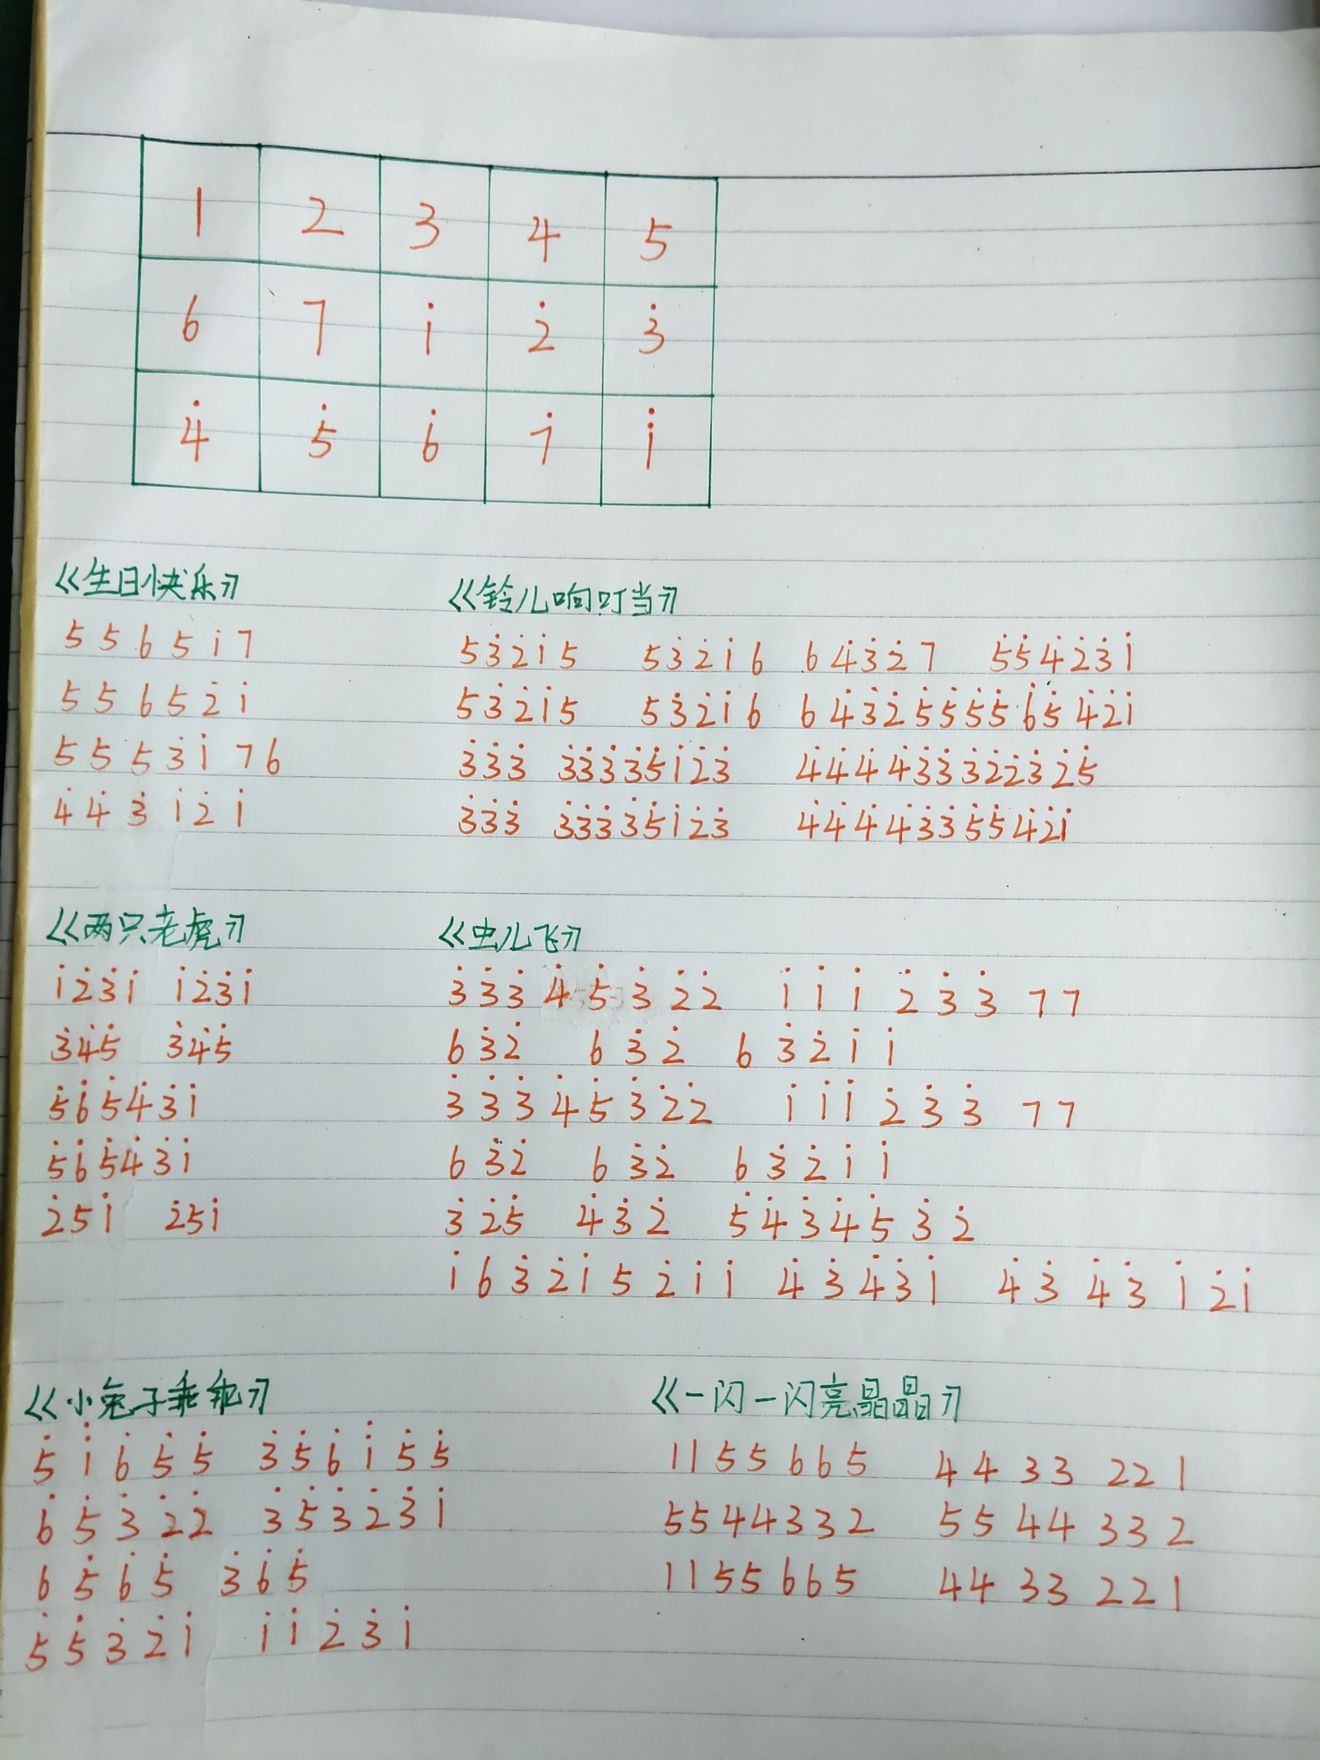 1 2 3 4 5
6 7 1̇ 2̇ 3̇
4̇ 5̇ 6̇ 7̇ 1̈
《生日快乐》
5 5 6 5 1̇ 7
5 5 6 5 2̇ 1̇
5 5 5̇ 3̇ 1̇ 7 6
4̇ 4̇ 3̇ 1̇ 2̇ 1̇
《铃儿响叮当》
5 3̇ 2̇ 1̇ 5 5 3̇ 2̇ 1̇ 6 6 4̇ 3̇ 2̇ 7 5̇ 5̇ 4̇ 2̇ 3̇ 1̇
5 3̇ 2̇ 1̇ 5 5 3̇ 2̇ 1̇ 6 6 4̇ 3̇ 2̇ 5̇ 5̇ 5̇ 5̇ 6̇ 5̇ 4̇ 2̇ 1̇
3̇ 3̇ 3̇ 3̇ 3̇ 3̇ 3̇ 5̇ 1̇ 2̇ 3̇ 4̇ 4̇ 4̇ 4̇ 3̇ 3̇ 3̇ 2̇ 2̇ 3̇ 2̇ 5̇
3̇ 3̇ 3̇ 3̇ 3̇ 3̇ 3̇ 5̇ 1̇ 2̇ 3̇ 4̇ 4̇ 4̇ 4̇ 3̇ 3̇ 5̇ 5̇ 4̇ 2̇ 1̇
《两只老虎》
1̇ 2̇ 3̇ 1̇ 1̇ 2̇ 3̇ 1̇
3̇ 4̇ 5̇ 3̇ 4̇ 5̇
5̇ 6̇ 5̇ 4̇ 3̇ 1̇
5̇ 6̇ 5̇ 4̇ 3̇ 1̇
2̇ 5 1̇ 2̇ 5 1̇
《虫儿飞》
3̇ 3̇ 3̇ 4̇ 5̇ 3̇ 2̇ 2̇ 1̇ 1̇ 1̇ 2̇ 3̇ 3̇ 7 7
6 3̇ 2̇ 6 3̇ 2̇ 6 3̇ 2̇ 1̇ 1̇
3̇ 3̇ 3̇ 4̇ 5̇ 3̇ 2̇ 2̇ 1̇ 1̇ 1̇ 2̇ 3̇ 3̇ 7 7
6 3̇ 2̇ 6 3̇ 2̇ 6 3̇ 2̇ 1̇ 1̇
3̇ 2̇ 5̇ 4̇ 3̇ 2̇ 5̇ 4̇ 3̇ 4̇ 5̇ 3̇ 2̇
1̇ 6 3̇ 2̇ 1̇ 5 2̇ 1̇ 1̇ 4̇ 3̇ 4̇ 3̇ 1̇ 4̇ 3̇ 4̇ 3̇ 1̇ 2̇ 1̇
《小兔子乖乖》
5̇ 1̈ 6̇ 5̇ 5̇ 3̇ 5̇ 6̇ 1̇ 5̇ 5̇
6̇ 5̇ 3̇ 2̇ 2̇ 3̇ 5̇ 3̇ 2̇ 3̇ 1̇
6 5̇ 6̇ 5̇ 3̇ 6̇ 5̇
5̇ 5̇ 3̇ 2̇ 1̇ 1̇ 1̇ 2̇ 3̇ 1̇
《一闪一闪亮晶晶》
1 1 5 5 6 6 5 4 4 3 3 2 2 1
5 5 4 4 3 3 2 5 5 4 4 3 3 2
1 1 5 5 6 6 5 4 4 3 3 2 2 1